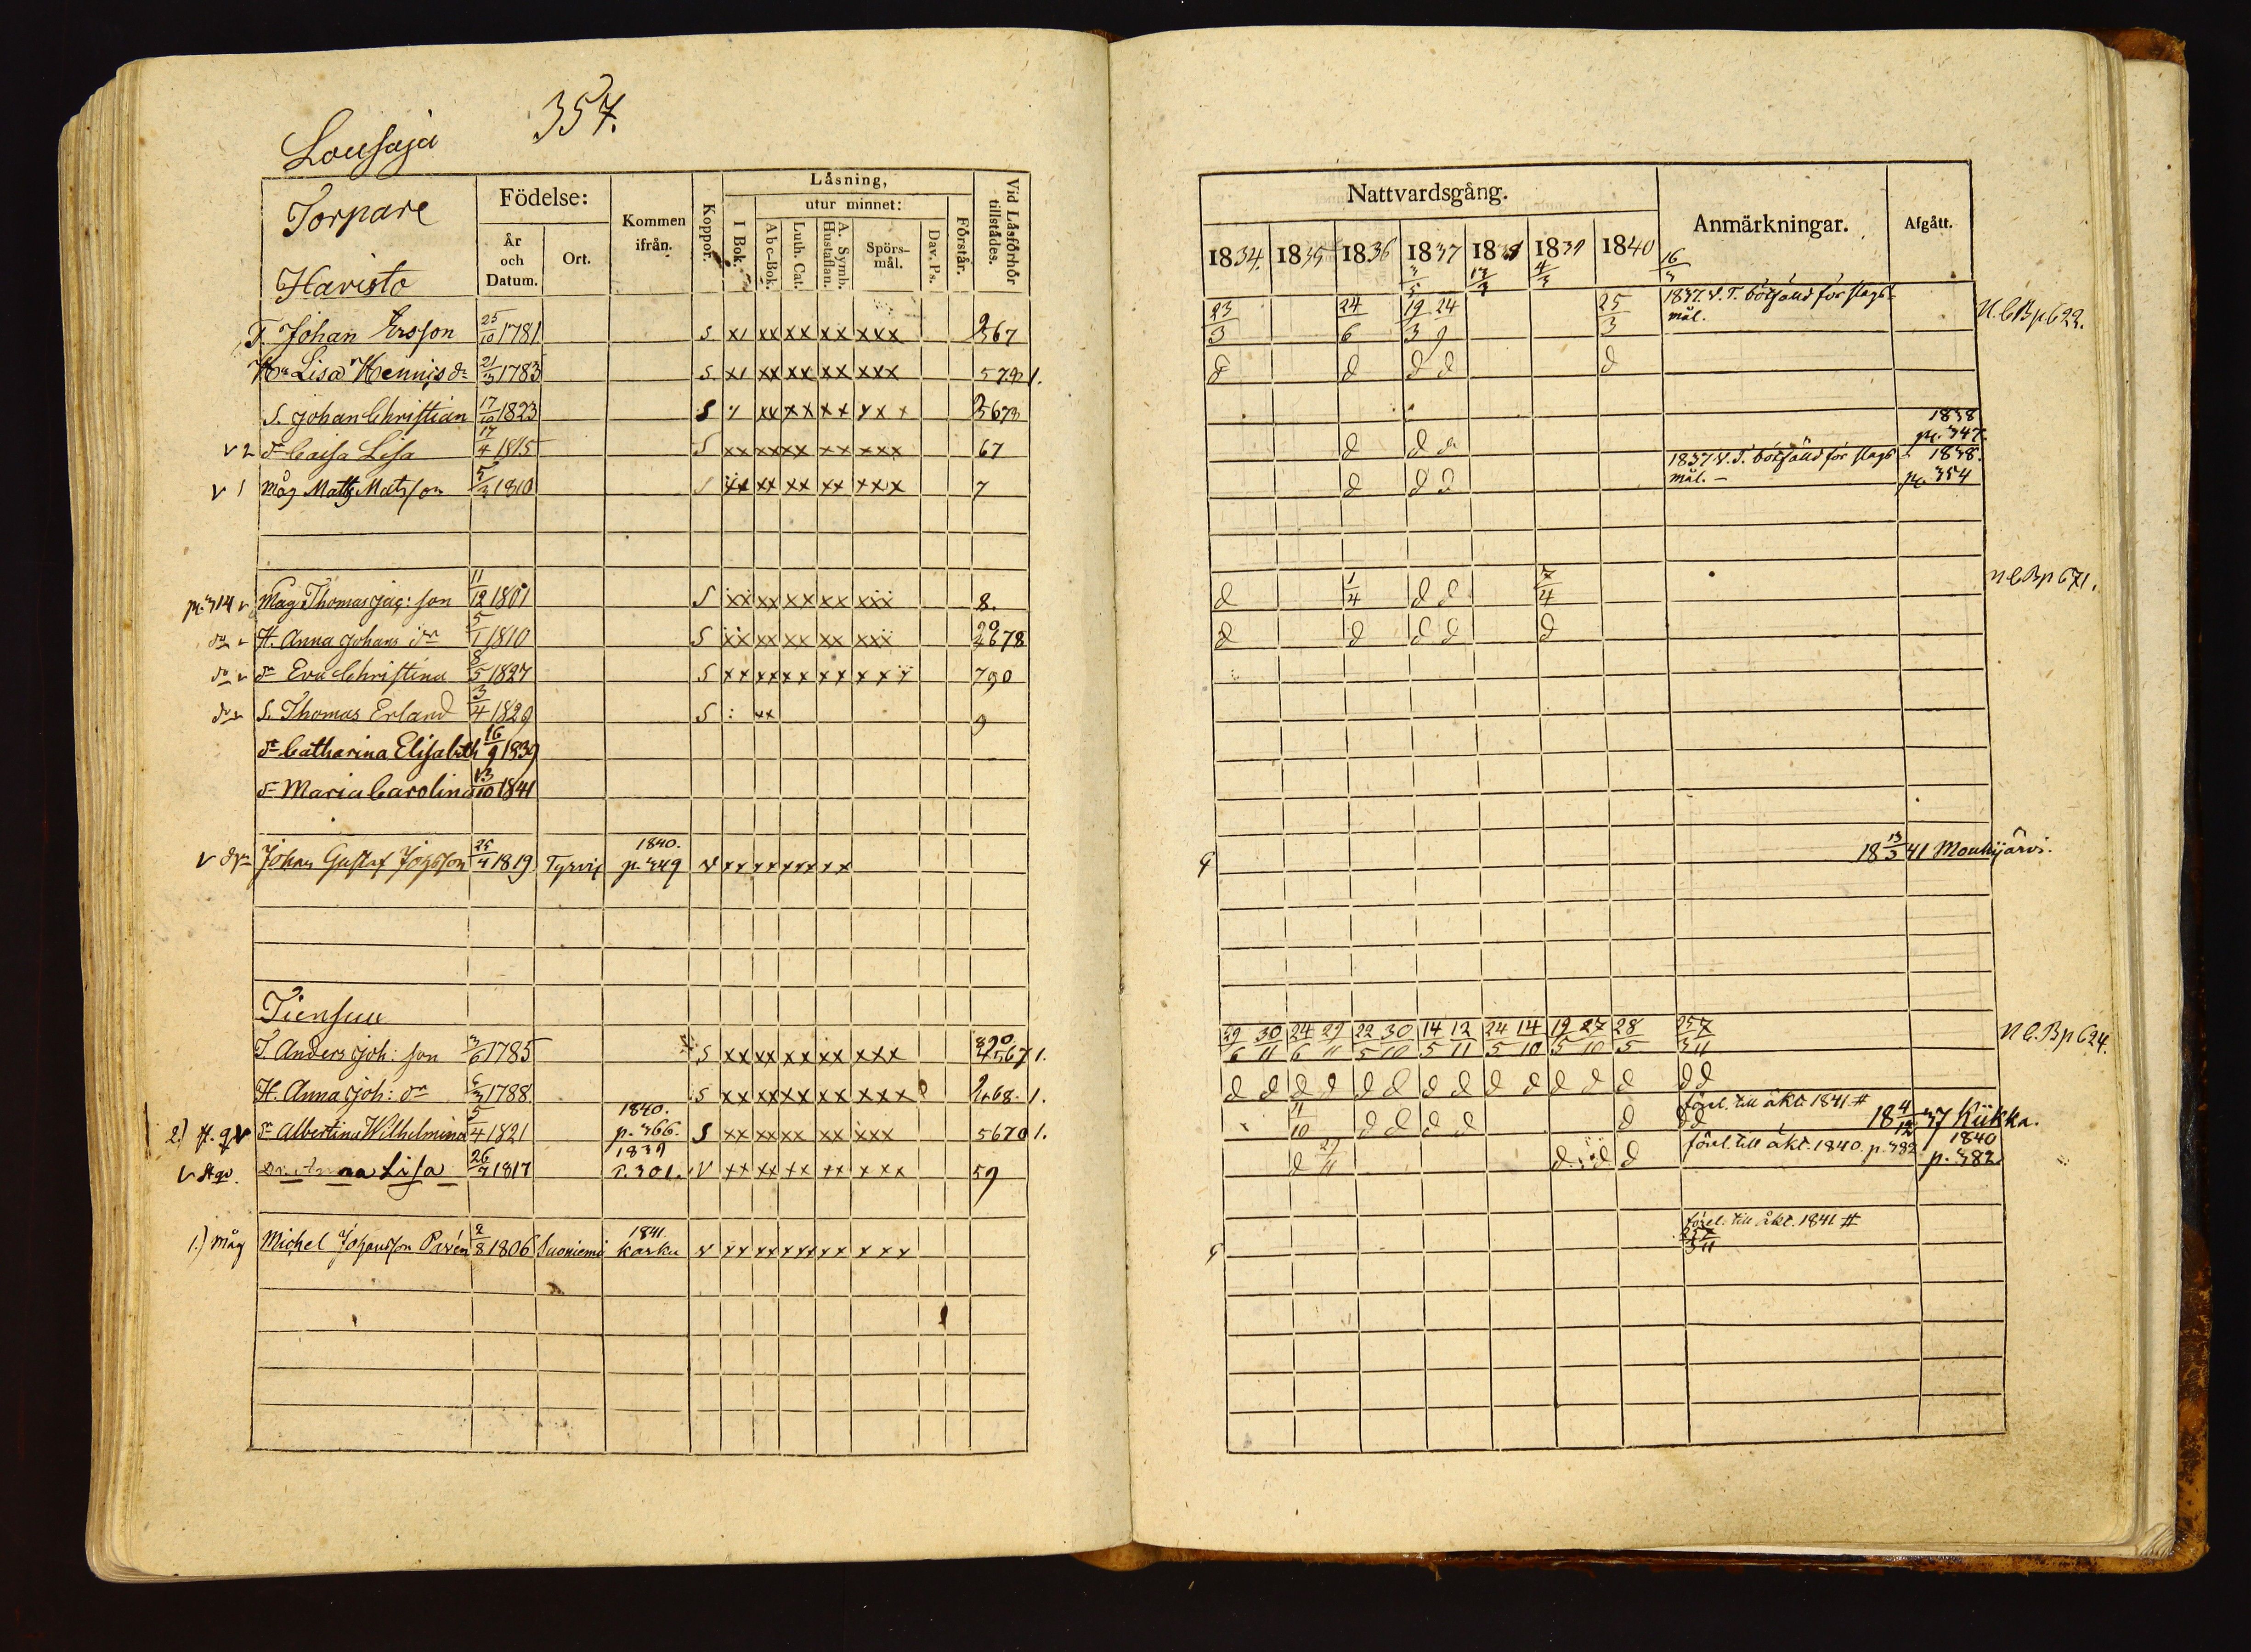 357.
Lousaja
Torpare
Haristo
Födelse:
År och Datum.
Ort.
Kommen ifrån.
Koppor.
Läsning,
I Bok.
utur minnet:
Abc-Bok.
Luth. Cat.
A. Symb. Hustaflan.
Spörs-mål.
Dav. Ps.
Förstår.
Vid Läsförhör tillstädes.
Nattvardsgång.
1834. 1835 1836 1837 1838 1839 1840
Anmärkningar.
Afgått.
T. Johan Ersson 25/10 1781 S x/ xx xx xx xxx 2567 23/3 24/6 19/3 24/9 25/3 1837 V. T. bötfäld för slagsmål. N.C.B p 623.
Hu Lisa Hennis dr 21/3 1783 S. x/ xx xx xx xxx 1. d d d d d
S. Johan Christian 17/10 1823 S xx xx xx xxx
v 2 dr Caisa Lisa 17/4 1815 S xx xx xx xx xxx 67 d d d 1838 p. 347.
v 1 måg Matts Matsson 5/3 1810 xx xx xx xx xxx 7 d d d 1837 V. T. bötfäld för slagsmål. – 1838. p. 354
p. 314 v Måg Thomas Jac: son 11/12 1801 S xx xx xx xx xxx 8. d 1/4 d d 7/4 N C B p 671.
do v H. Anna Johans dr 5/1 1810 S xx xx xx xx xxx d d d d d
do v dr Eva Christina 8/5 1827 S xx xx xx xx xxx 790
do v S. Thomas Erland 3/4 1829 S : xx 9
dr Catharina Elisabeth 16/9 1839
dr Maria Carolina 13/10 1841
v dr Johan Gustaf Jögsson 25/4 1819 Tyrvis 1840. p. 349 v xx xx xx xx 18 13/3 41 Mouhijärvi.
Tiensuu
T. Anders Joh: son 3/6 1785 S xx xx xx xx xxx 1. 29/6 30/11 24/6 29/11 22/5 30/10 14/5 12/11 24/5 14/10 19/5 27/10 28/5 25/3 7/11 N C.B p 624.
H. Anna Joh: dr 1788. S xx xx xx xx xxx 2468. 1. d d d d d d d d d d d d d d d
2.) dr Albertina Wilhelmina 5/4 1821 1840. p. 366. S xx xx xx xx xxx 5670 1. 11/10 d d d d d d d förel. till äkt. 1841 # 18 4/12 37 Kiikka.
v Dr. Anna Lisa 26/7 1817 1839 P. 301. V xx xx xx xx xxx 59 d 29/11 d d d förel. till äkt. 1840. p. 382 1840 p. 382.
1.) måg Michel Johansson Pavén 2/8 1806 Suoniemi 1841. Karku v xx xx xx xx xxx förel. till äkt. 1841 # 25/3 7/11